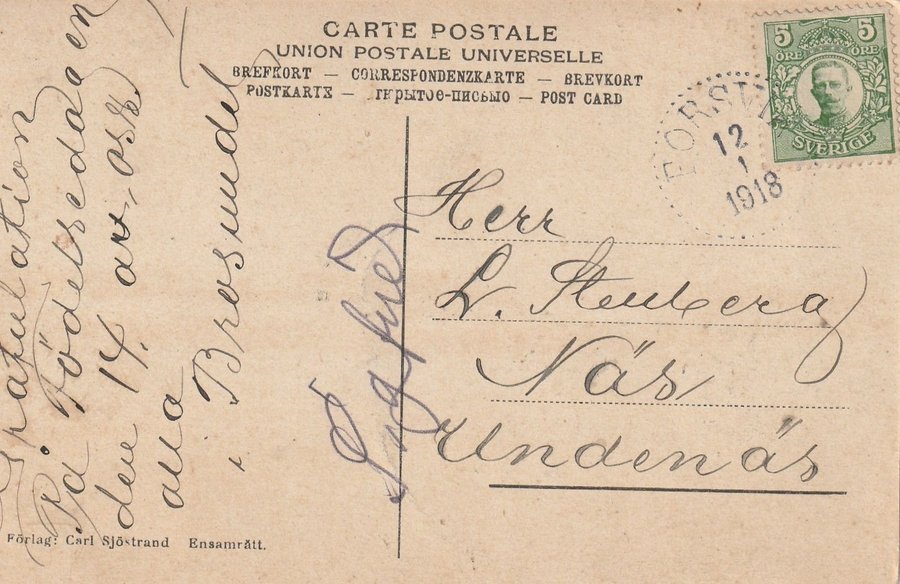 CARTE POSTALE
UNION POSTALE UNIVERSELLE
BREFKORT — CORRESPONDENZKARTE — BREVKORT
POSTKARTE — ОТКРЫТОЕ-ПИСЬМО — POST CARD
5 5
ÖRE ÖRE
SVERIGE
FORSVI
12
1
1918
Gratulation
På Födelsedagen
den 14. av, oss
alla
i Brosundet
Herr
L. Stenberg
Näs
Undenäs
Förlag: Carl Sjöstrand Ensamrätt.